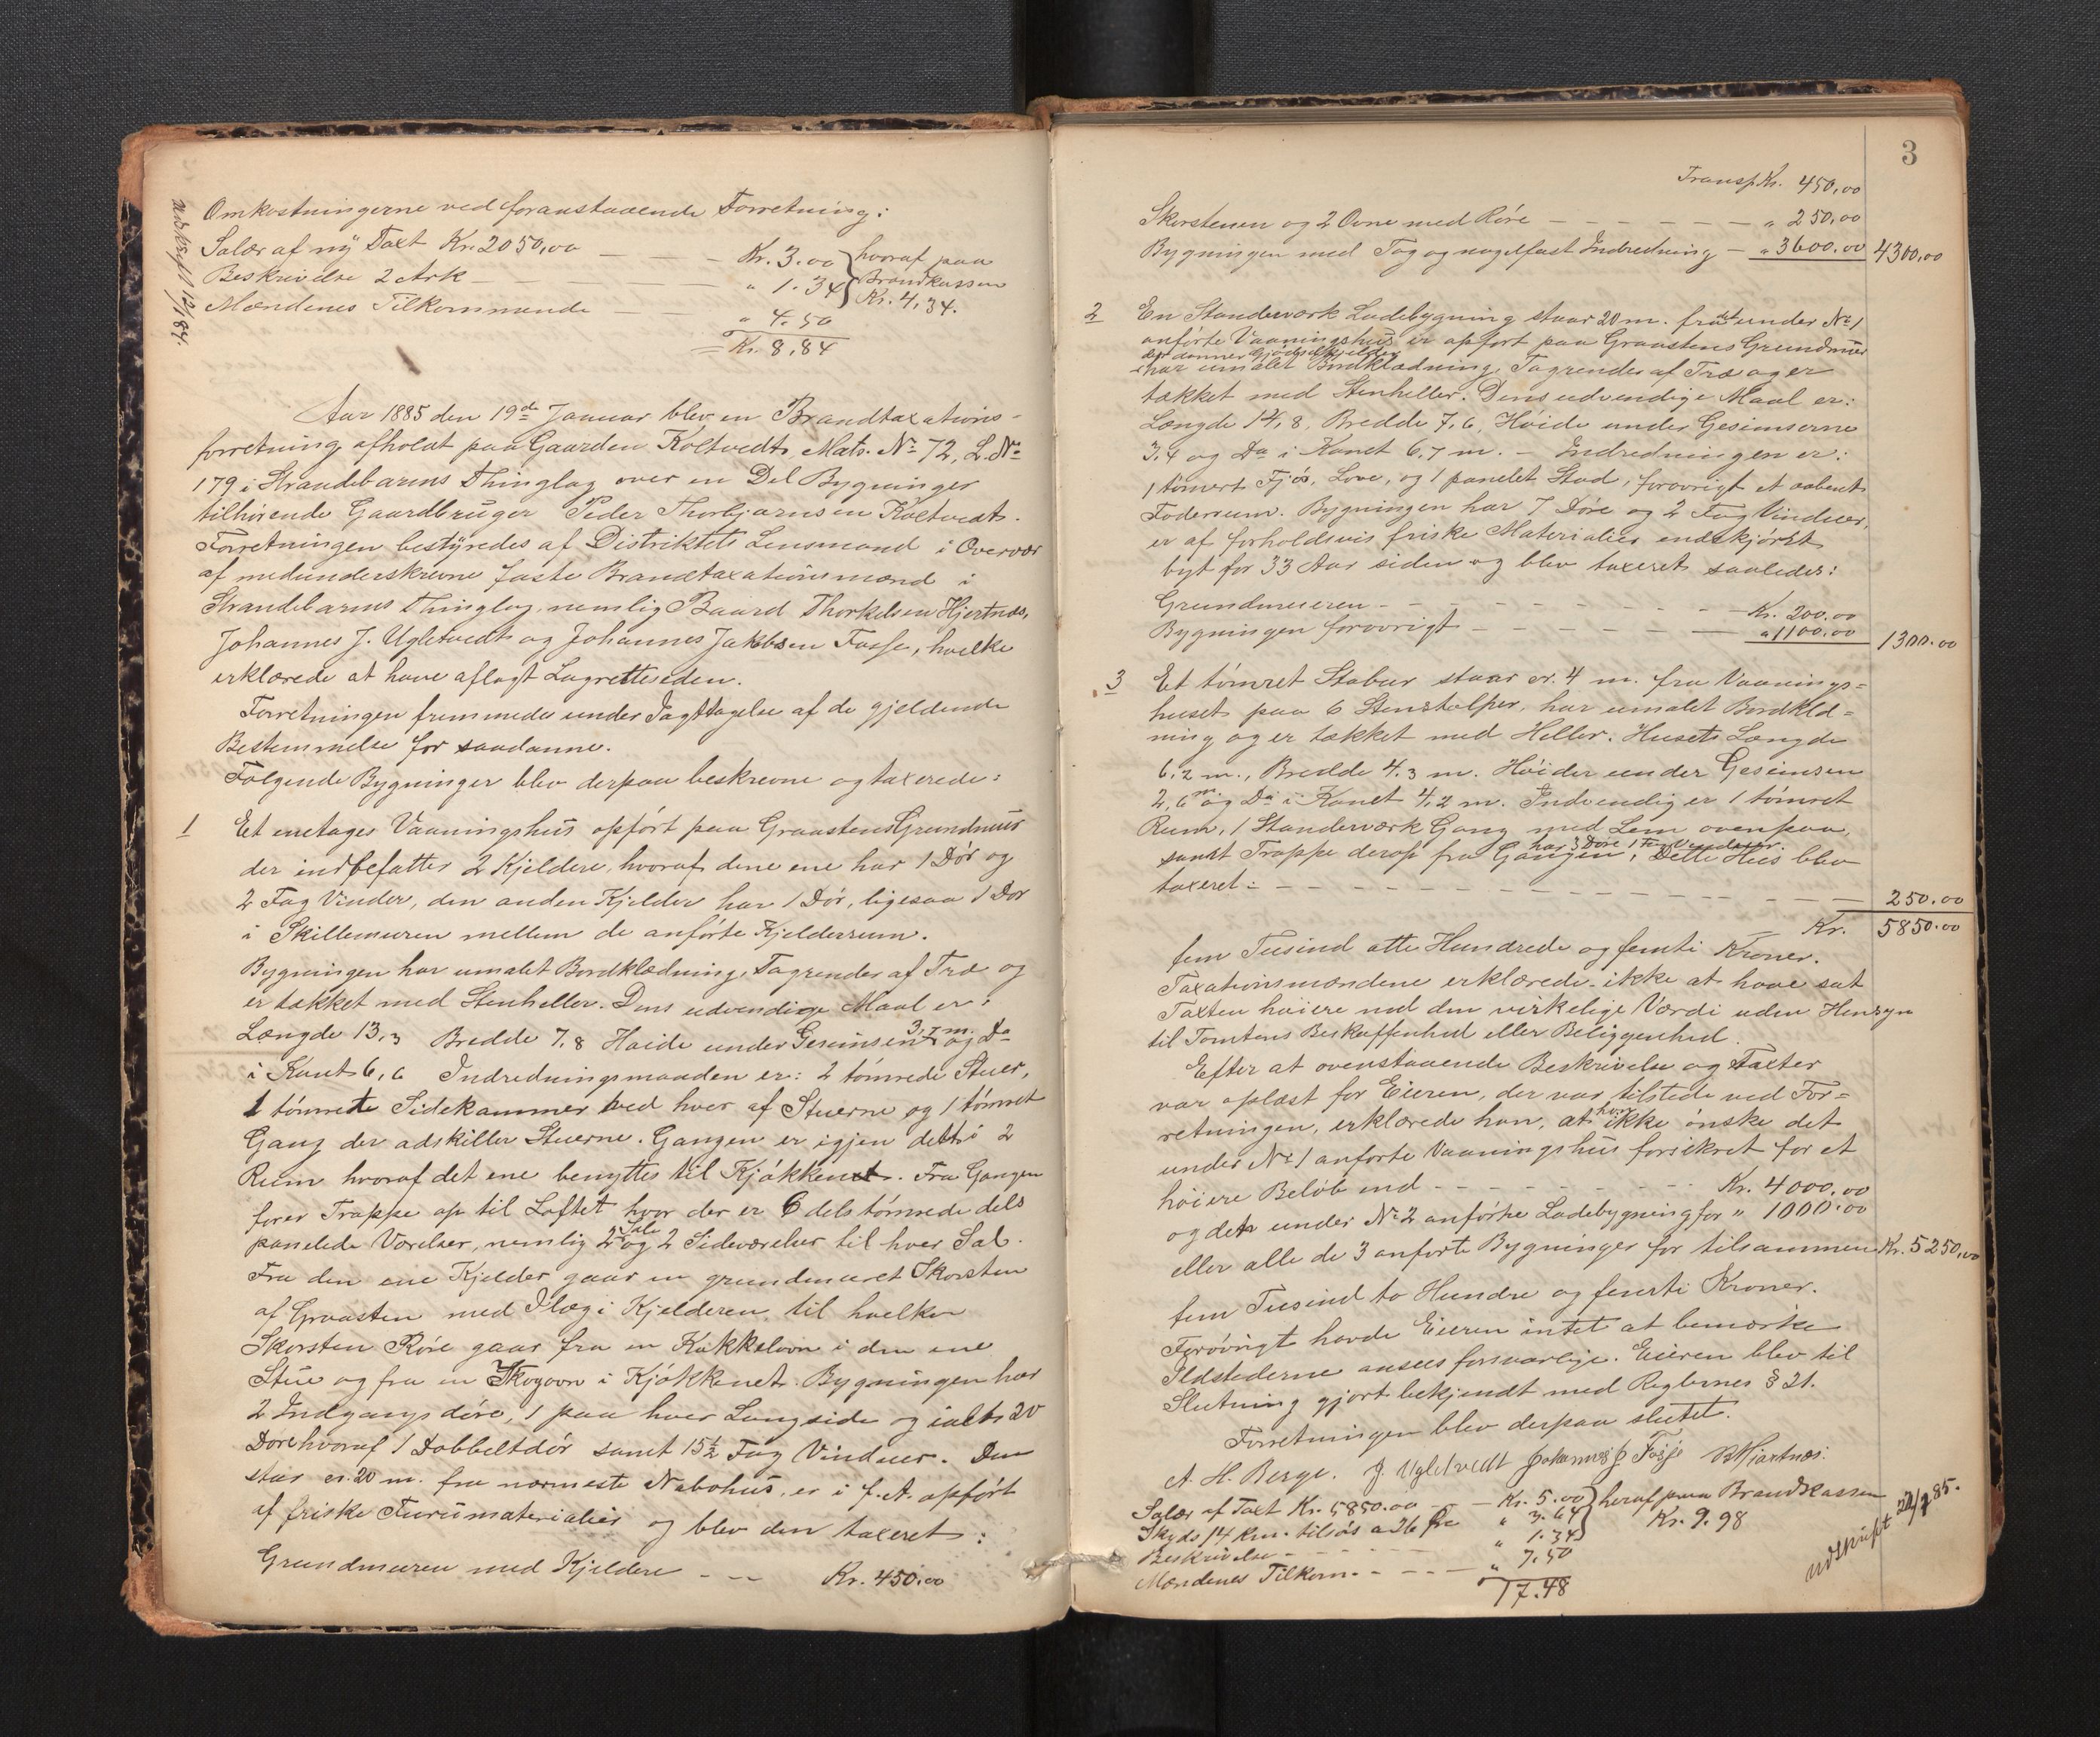 Omkostningerne ved foranstaaende Forretning:
Salær af ny Taxt Kr. 2050,00 — — — Kr. 3.00 } hvoraf paa
Beskrivelse 2 Ark — — — " 1.34 } Brandkassen
Kr. 4,34.
Mændenes Tilkommende " 4.50
= Kr. 8,84
Udskrift 12/1 84.
Aar 1885 den 19de Januar blev en Brandtaxations-
forretning afholdt paa Gaarden Koltvedt, Matr. No 72, L. No
179 i Strandebarms Thinglag over en Del Bygninger
tilhørende Gaardbruger Peder Thorbjørnsen Koltvedt.
Forretningen bestyredes af Distriktets Lensmand i Overvær
af medunderskrevne faste Brandtaxationsmænd i
Strandebarms Thinglag, nemlig Baard Thorkelsen Hjertnæs,
Johannes J. Ugletvedt og Johannes Jakobsen Fosse, hvilke
erklærede at have aflagt Lagretteseden.
Forretningen fremmedes under Iagttagelse af de gjeldende
Bestemmelse for saadanne.
Følgende Bygninger blev derpaa beskrevne og taxerede:
1 Et enetages Vaaningshus opført paa Graastens Grundmur
der indbefatter 2 Kjeldere, hvoraf dene ene har 1 Dør og
2 Fag Vinder, den anden Kjelder har 1 Dør, ligesaa 1 Dør
i Skillemuren mellem de anførte Kjelderrum.
Bygningen har umalet Bordklædning, Tagrender af Træ og
er takket med Stenheller. Dens udvendige Maal er:
Længde 13,3 Bredde 7,8 Høide under Gesimsen 3,7 m. og Do
i Kanet 6,6 Indredningsmaaden er: 2 tømrede Stuer,
1 tømrete Sidekammer ved hver af Stuerne og 1 tømret
Gang der adskiller Stuerne. Gangen er igjen delt i 2
Rum hvoraf det ene benyttes til Kjøkkenet. Fra Gangen
fører Trappe op til Loftet hvor der er 6 dels tømrede dels
panelede Værelser, nemlig 2 Sale og 2 Sideværelser til hver Sal.
Fra den ene Kjelder gaar en grundmuret Skorsten
af Graasten med Ilæg i Kjelderen, til hvilken
Skorsten Røre gaar fra en Kakkelovn i den ene
Stue og fra en Kogovn i Kjøkkenet. Bygningen har
2 Indgangsdøre, 1 paa hver Langside og ialt 20
Døre hvoraf 1 Dobbeltdør samt 15½ Fag Vinduer. Den
staar cr. 20 m. fra nærmeste Nabohus, er i f. A. opført
af friske Furumaterialier og blev den taxeret:
Grundmuren med Kjeldere — — Kr. 450.00
3
Transp. Kr. 450,00
Skorstenen og 2 Ovne med Røre — — — — — " 250,00
Bygningen med Tag og nagelfast Indredning — " 3600.00 4300,00
2 En Standerværk Ladebygning staar 20 m. fra det under No 1
anførte Vaaningshus er opført paa Graastens Grundmur
der danner Gjødselkjelder
har umalet Bordklædning, Tagrender af Træ og er
takket med Stenheller. Dens udvendige Maal er:
Længde 14,8, Bredde 7,6, Høide under Gesimserne
3,4 og Do i Kanet 6,7 m. — Indredningen er:
1 tømert Fjøs, Love, og 1 panelet Stad, forøvrigt et aabent
Foderrum. Bygningen har 7 Døre og 2 Fag Vinduer,
er af forholdsvis friske Materialier endskjøndt
bygt for 33 Aar siden og blev taxeret saaledes:
Grundmuren — — — — — — — Kr. 200.00
Bygningen forøvrigt — — — — — " 1100.00 1300.00
3 Et tømret Stabur staar cr. 4 m. fra Vaanings=
huset paa 6 Stenstolper, har umalet Bordklæd=
ning og er takket med Heller. Husets Længde
6,2 m., Bredde 4,3 m. Høider under Gesimsen
2,6 m. og Do i Kanet 4,2 m. Indvendig er 1 tømret
Rum, 1 Standerværk Gang med Lem ovenpaa,
samt Trappe derop fra Gangen, har 3 Døre 1 Fag Vinduer. Dette Hus blev
taxeret: — — — — — — — — — 250.00
Kr. 5850.00
fem Tusind otte Hundrede og femti Kroner.
Taxationsmændene erklærede ikke at have sat
Taxten høiere end den virkelige Værdi uden Hensyn
til Tomtens Beskaffenhed eller Beliggenhed.
Efter at ovenstaaende Beskrivelse og Taxter
var oplæst for Eieren, der var tilstede ved For=
retningen, erklærede han, at han ikke ønske det
under No 1 anførte Vaaningshus forsikret for et
høiere Beløb end — — — — — Kr. 4000.00
og den under No 2 anførte Ladebygning for " 1000.00
eller alle de 3 anførte Bygninger for tilsammen Kr. 5250,00
fem Tusind to Hundre og femti Kroner.
Forøvrigt havde Eieren intet at bemærke
Ildstederne ansees forsvarlige. Eieren blev til
Slutning gjort bekjendt med Reglernes § 21.
Forretningen blev derpaa sluttet.
A. H. Berge. J. Ugletvedt Johannes J Fosse B T Hjærtnæs.
Salær af Taxt Kr. 5850.00 — — Kr. 5.00 } heraf paa Brandkassen
Skyds 14 km. tilsøs a 26 Øre " 3.64 } Kr. 9.98
Beskrivelse — — — " 1.34 }
Mændenes Tilkom. — — — " 7.50
17.48
Udskrift 22/7 85.